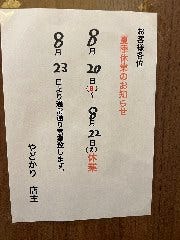 お客様各位
夏季休業のお知らせ
8月20日(日)〜8月22日(火)休業
8月23日より通常通り営業致します。
やどかり 店主